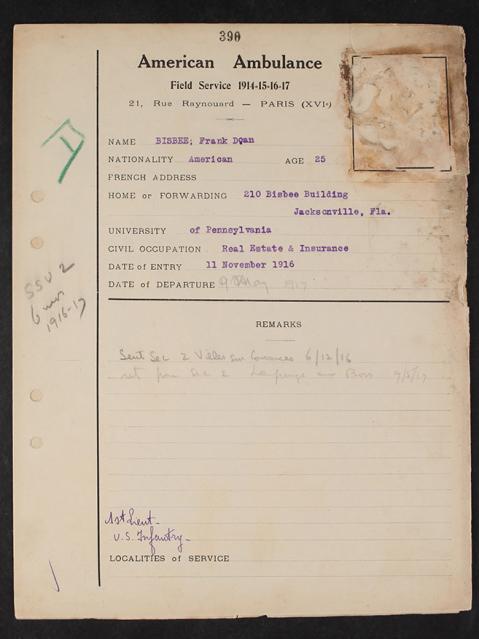 390
American Ambulance
Field Service 1914-15-16-17
21, Rue Raynouard — PARIS (XVIe)
NAME BISBEE, Frank Dean
NATIONALITY American AGE 25
FRENCH ADDRESS
HOME or FORWARDING 210 Bisbee Building
Jacksonville, Fla.
UNIVERSITY of Pennsylvania
CIVIL OCCUPATION Real Estate & Insurance
DATE of ENTRY 11 November 1916
DATE of DEPARTURE 9 May 1917
SSU 2
6 mos
1916-17
REMARKS
Sent Sec 2 Ville sur Cousances 6/12/16
ret from Sec 2 9/5/17
1st Lieut-
U.S. Infantry-
LOCALITIES of SERVICE